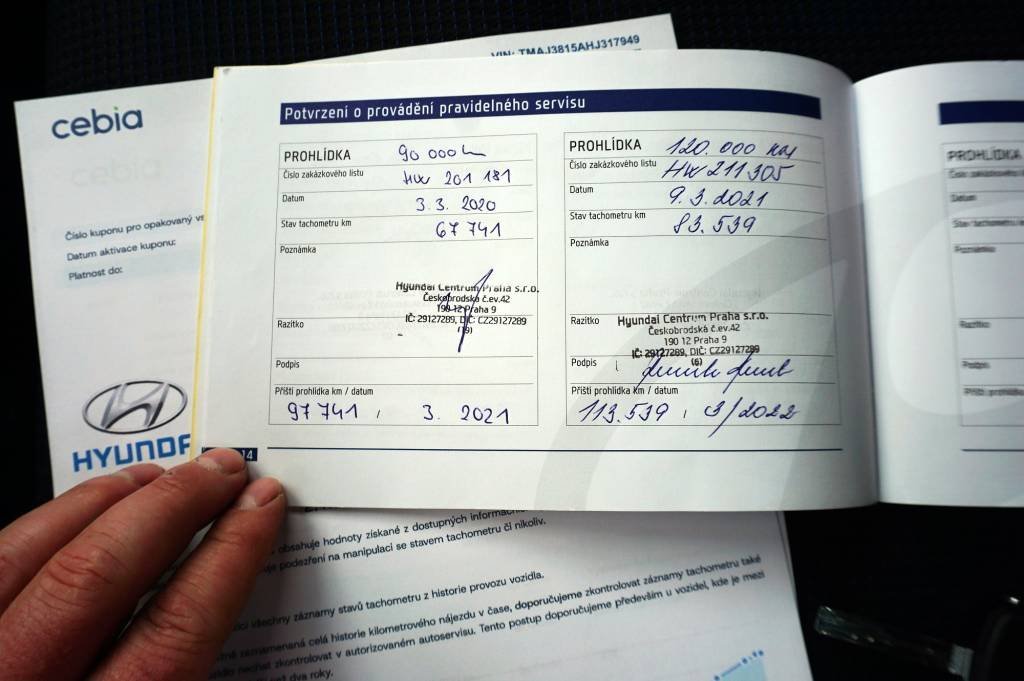 VIN: TMAJ3815AHJ317949
cebia
Číslo kuponu pro opakovaný
Datum aktivace kuponu:
Platnost do:
HYUNDA
Potvrzení o provádění pravidelného servisu
PROHLÍDKA 90 000 km
Číslo zakázkového listu HW 201 181
Datum 3. 3. 2020
Stav tachometru km 67 741
Poznámka
Hyundai Centrum Praha s.r.o.
Českobrodská č.ev.42
190 12 Praha 9
Razítko IČ: 29127289, DIČ: CZ29127289
Podpis
Příští prohlídka km / datum
97 741 / 3. 2021
14
PROHLÍDKA 120.000 km
Číslo zakázkového listu HW 211305
Datum 9. 3. 2021
Stav tachometru km 83.539
Poznámka
Razítko Hyundai Centrum Praha s.r.o.
Českobrodská č.ev.42
190 12 Praha 9
IČ: 29127289, DIČ: CZ29127289
(6)
Podpis
Příští prohlídka km / datum
113.539 / 3/2022
PROHLÍDKA
Číslo zakázkového
Datum
Stav tachometru km
Poznámka
Razítko
Podpis
Příští prohlídka
obsahuje hodnoty získané z dostupných
podezření na manipulaci se stavem tachometru či nikoliv.
všechny záznamy stavů tachometru z historie provozu vozidla.
zaznamenaná celá historie kilometrového nájezdu v čase, doporučujeme zkontrolovat záznamy tachometru také
nechat zkontrolovat v autorizovaném autoservisu. Tento postup doporučujeme především u vozidel, kde je mezi
dva roky.